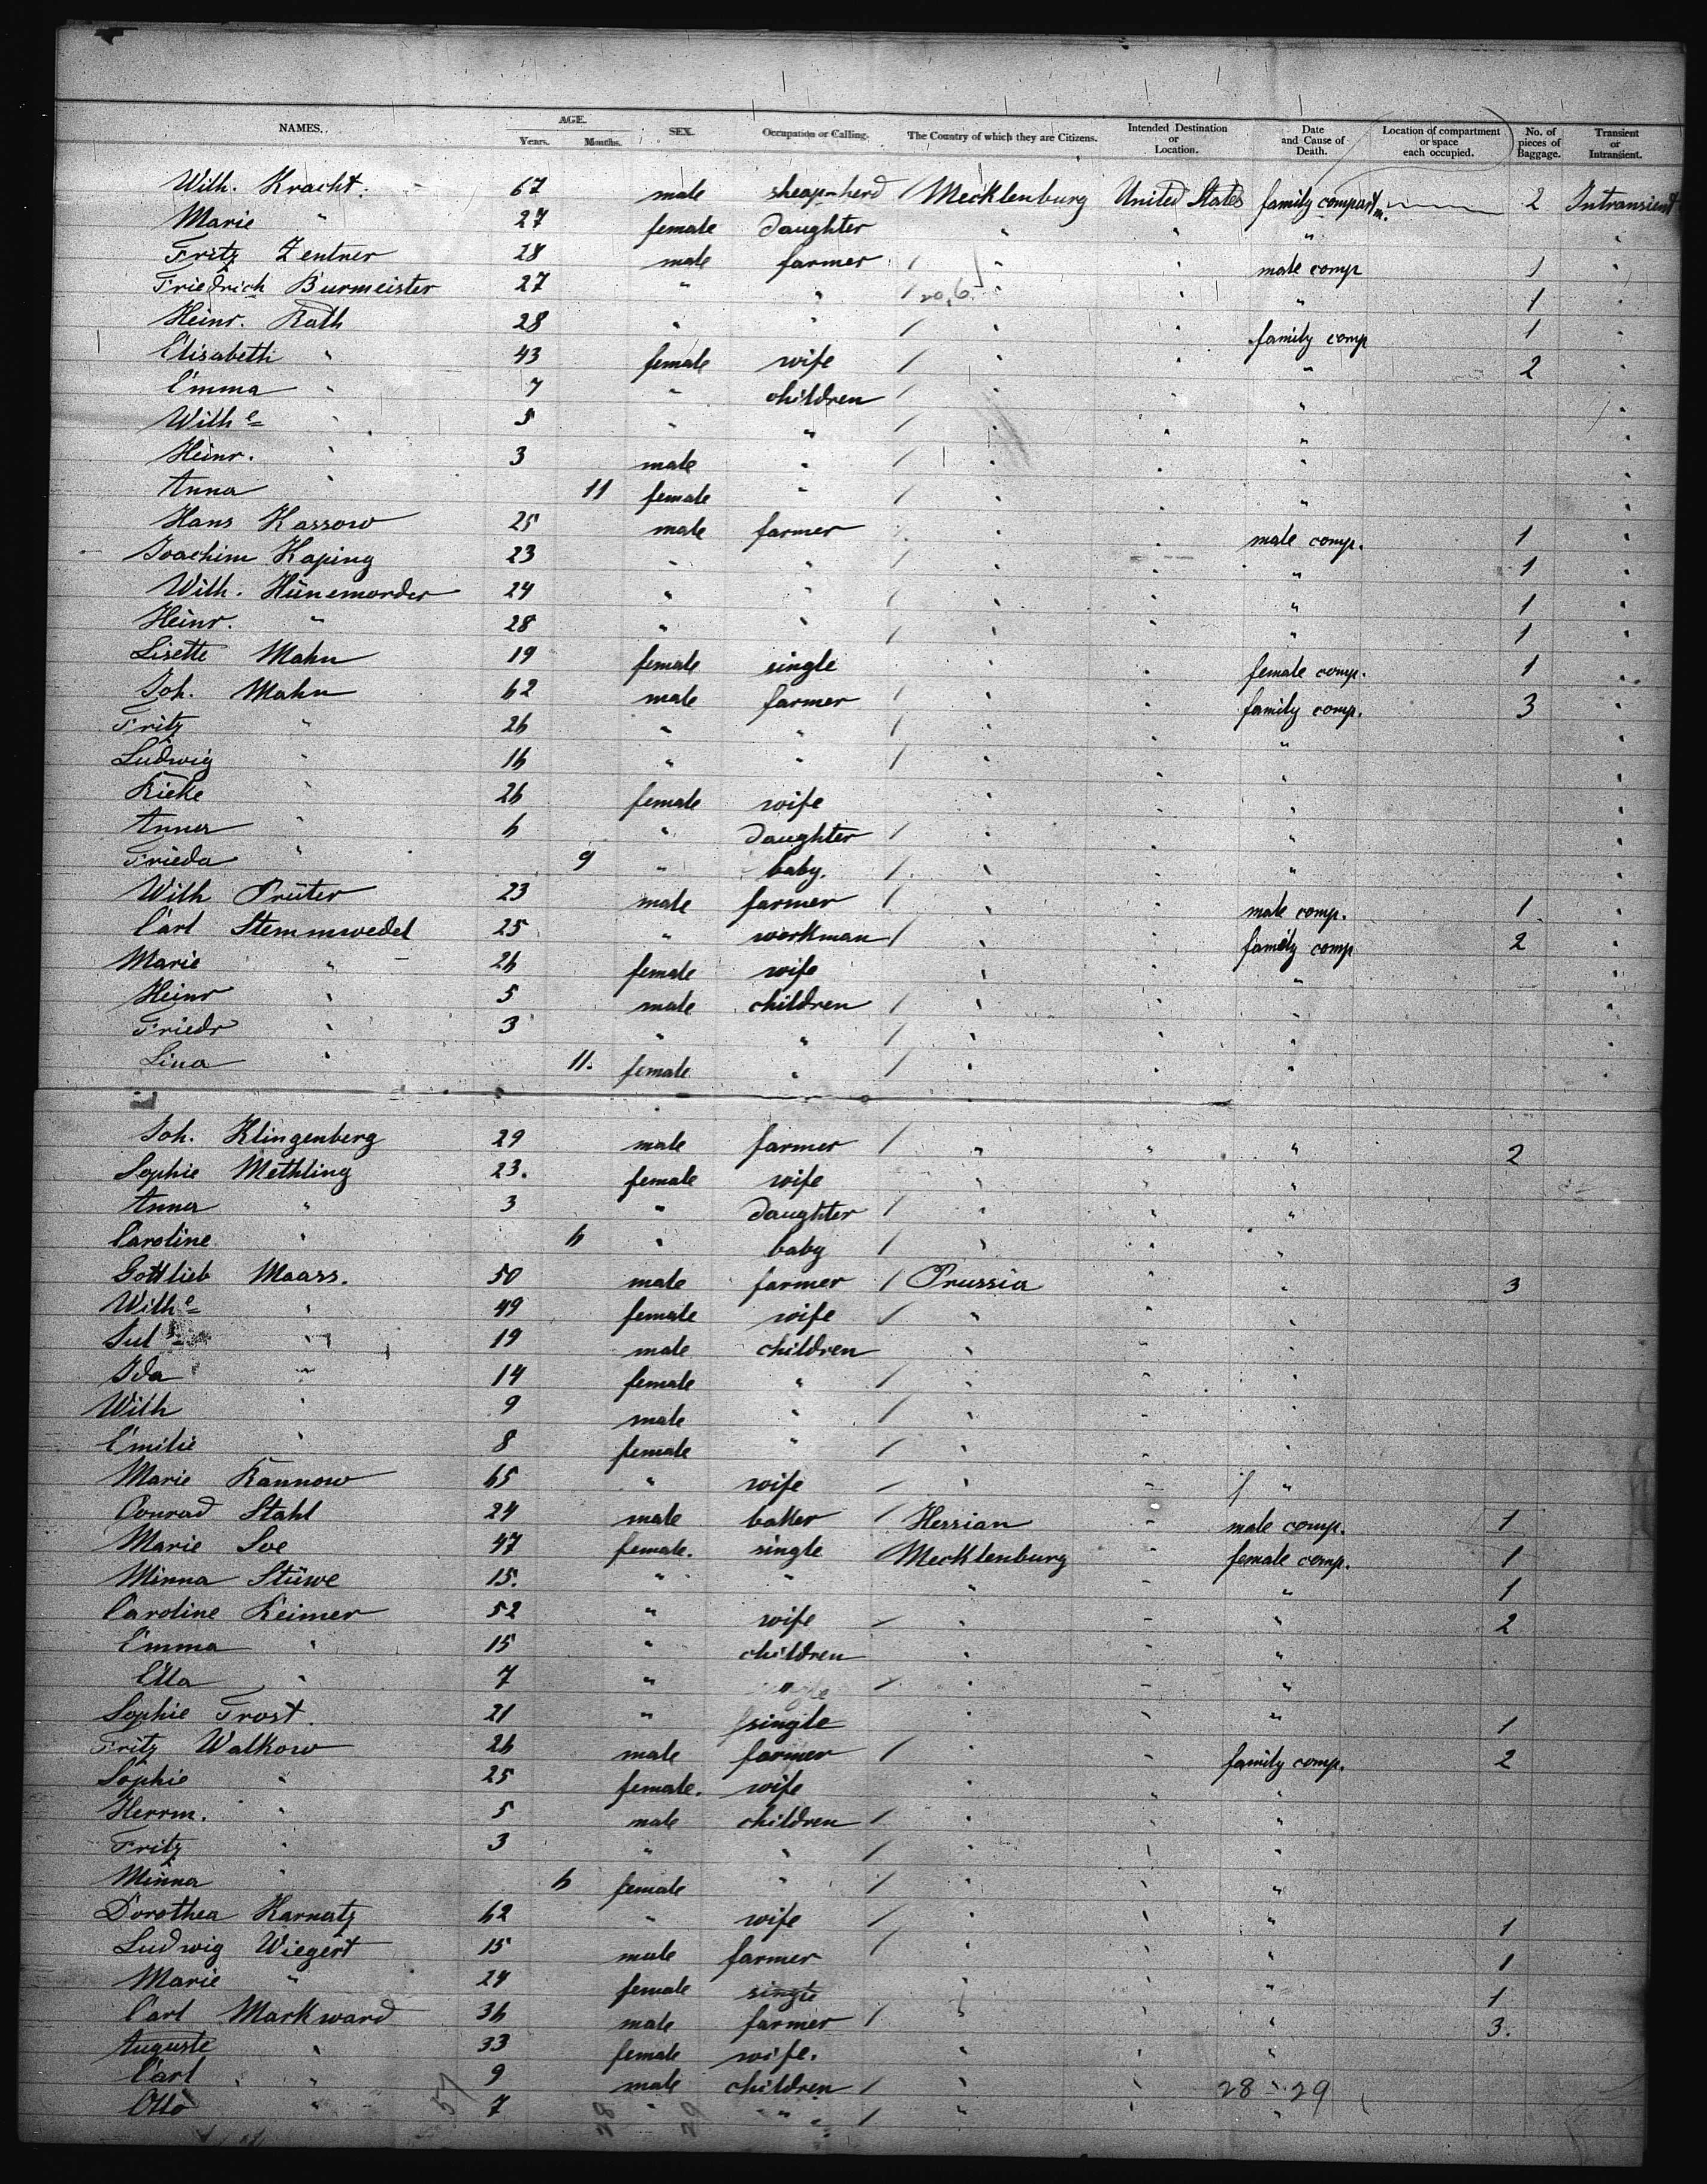 NAMES. AGE. Years. Months. SEX. Occupation or Calling. The Country of which they are Citizens. Intended Destination or Location. Date and Cause of Death. Location of compartment or space each occupied. No. of pieces of Baggage. Transient or Intransient.
Wilh. Kracht. 67 male sheap-herd / Mecklenburg United States family compartm. 2 Intransient
Marie " 27 female daughter " " " "
Fritz Zentner 28 male farmer / " " male comp 1 "
Friedrich Burmeister 27 " " / 20,6 " " " 1 "
Heinr. Rath 28 " " / " " family comp 1 "
Elisabeth " 43 female wife / " " " 2 "
Emma " 7 " children / " " " "
Wilhe " 5 " " / " " " "
Heinr. " 3 male " / " " " "
Anna " 11 female " / " " " "
Hans Kassow 25 male farmer " " male comp. 1 "
Joachim Kaping 23 " " / " " " 1 "
Wilh. Hünemorder 24 " " / " " " 1 "
Heinr. " 28 " " / " " " 1 "
Lisette Mahn 19 female single " " female comp. 1 "
Joh. Mahn 62 male farmer / " " family comp. 3 "
Fritz " 26 " " / " " " "
Ludwig " 16 " " / " " " "
Rieke " 26 female wife " " " "
Anna " 6 " daughter / " " " "
Frieda " 9 " baby. / " " " "
Wilh Prüter 23 male farmer / " " male comp. 1 "
Carl Stemmwedel 25 " workman / " " family comp 2 "
Marie " 26 female wife " " " "
Heinr " 5 male children / " " " "
Friedr " 3 " " / " " " "
Lina " 11. female " / " " " "
Joh. Klingenberg 29 male farmer / " " " 2
Sophie Methling 23. female wife " " "
Anna " 3 " daughter / " " "
Caroline " 6 " baby / " " "
Gottlieb Maass. 50 male farmer / Prussia " " 3
Wilhe " 49 female wife / " " "
Jul " 19 male children " " "
Ida " 14 female " / " " "
Wilh " 9 male " / " " "
Emilie " 8 female " / " " "
Marie Rannow 65 " wife / " " "
Conrad Stahl 24 male baker / Hessian " male comp. 1
Marie Soe 47 female. single Mecklenburg " female comp. 1
Minna Stüwe 15. " " " " " 1
Caroline Reimer 52 " wife / " " " 2
Emma " 15 " children " " "
Ella " 7 " / " " "
Sophie Trost. 21 " single " " " 1
Fritz Walkow 26 male farmer / " " family comp. 2
Sophie " 25 female. wife " " "
Herrm. " 5 male children / " " "
Fritz " 3 " " / " " "
Minna " 6 female " / " " "
Dorothea Karnatz 62 " wife / " " " 1
Ludwig Wiegert 15 male farmer / " " " 1
Marie " 24 female single " " " 1
Carl Markward 36 male farmer / " " " 3.
Auguste " 33 female wife. " " "
Carl " 9 male children / " " 28 - 29
Otto " 7 " " / " " "
57 28 29